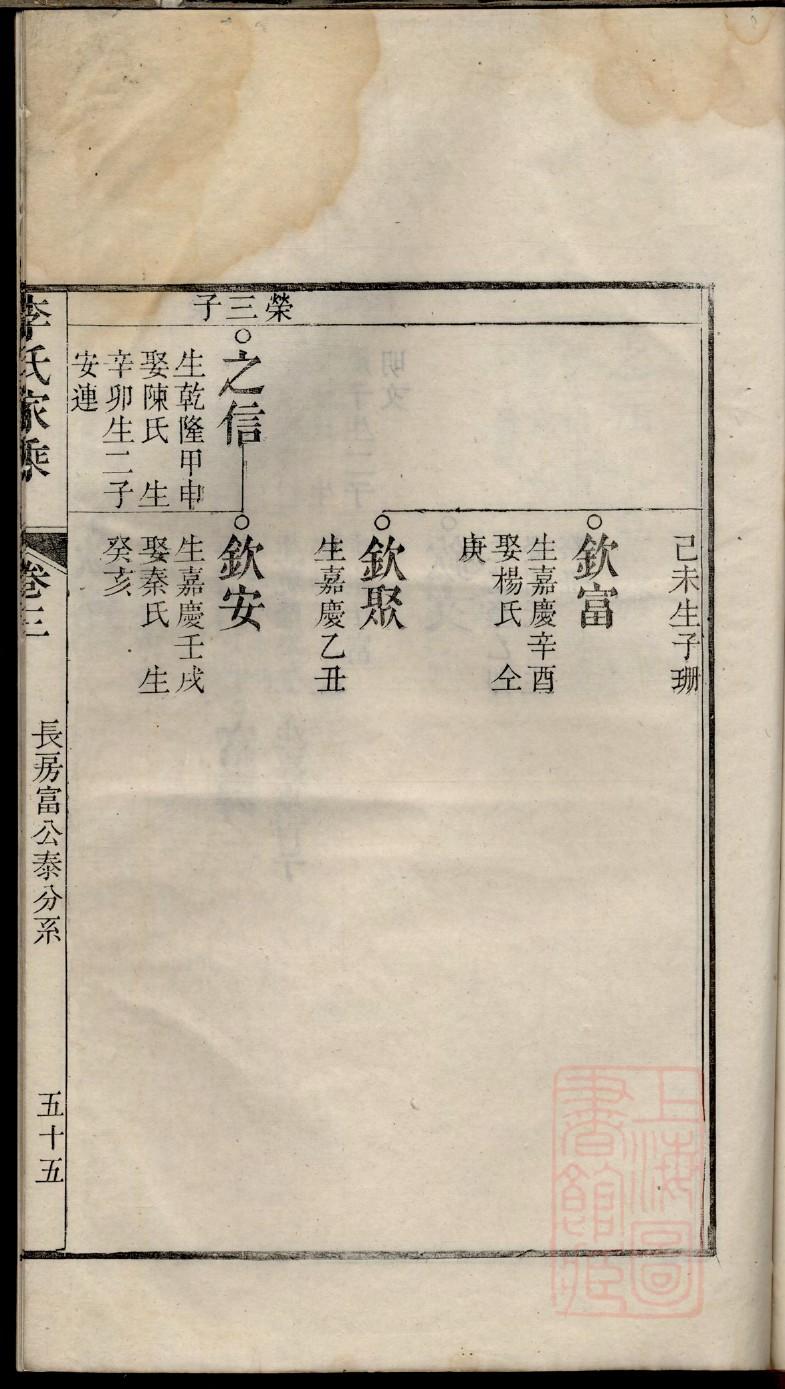 己未生子珊
欽富
生嘉慶辛酉
娶楊氏 仝
庚
欽聚
生嘉慶乙丑
榮三子
之信
生乾隆甲申
娶陳氏 生
辛卯生二子
安連
欽安
生嘉慶壬戌
娶秦氏 生
癸亥
李氏家乘
卷三
長房富公泰分系
五十五
上海圖
書館藏